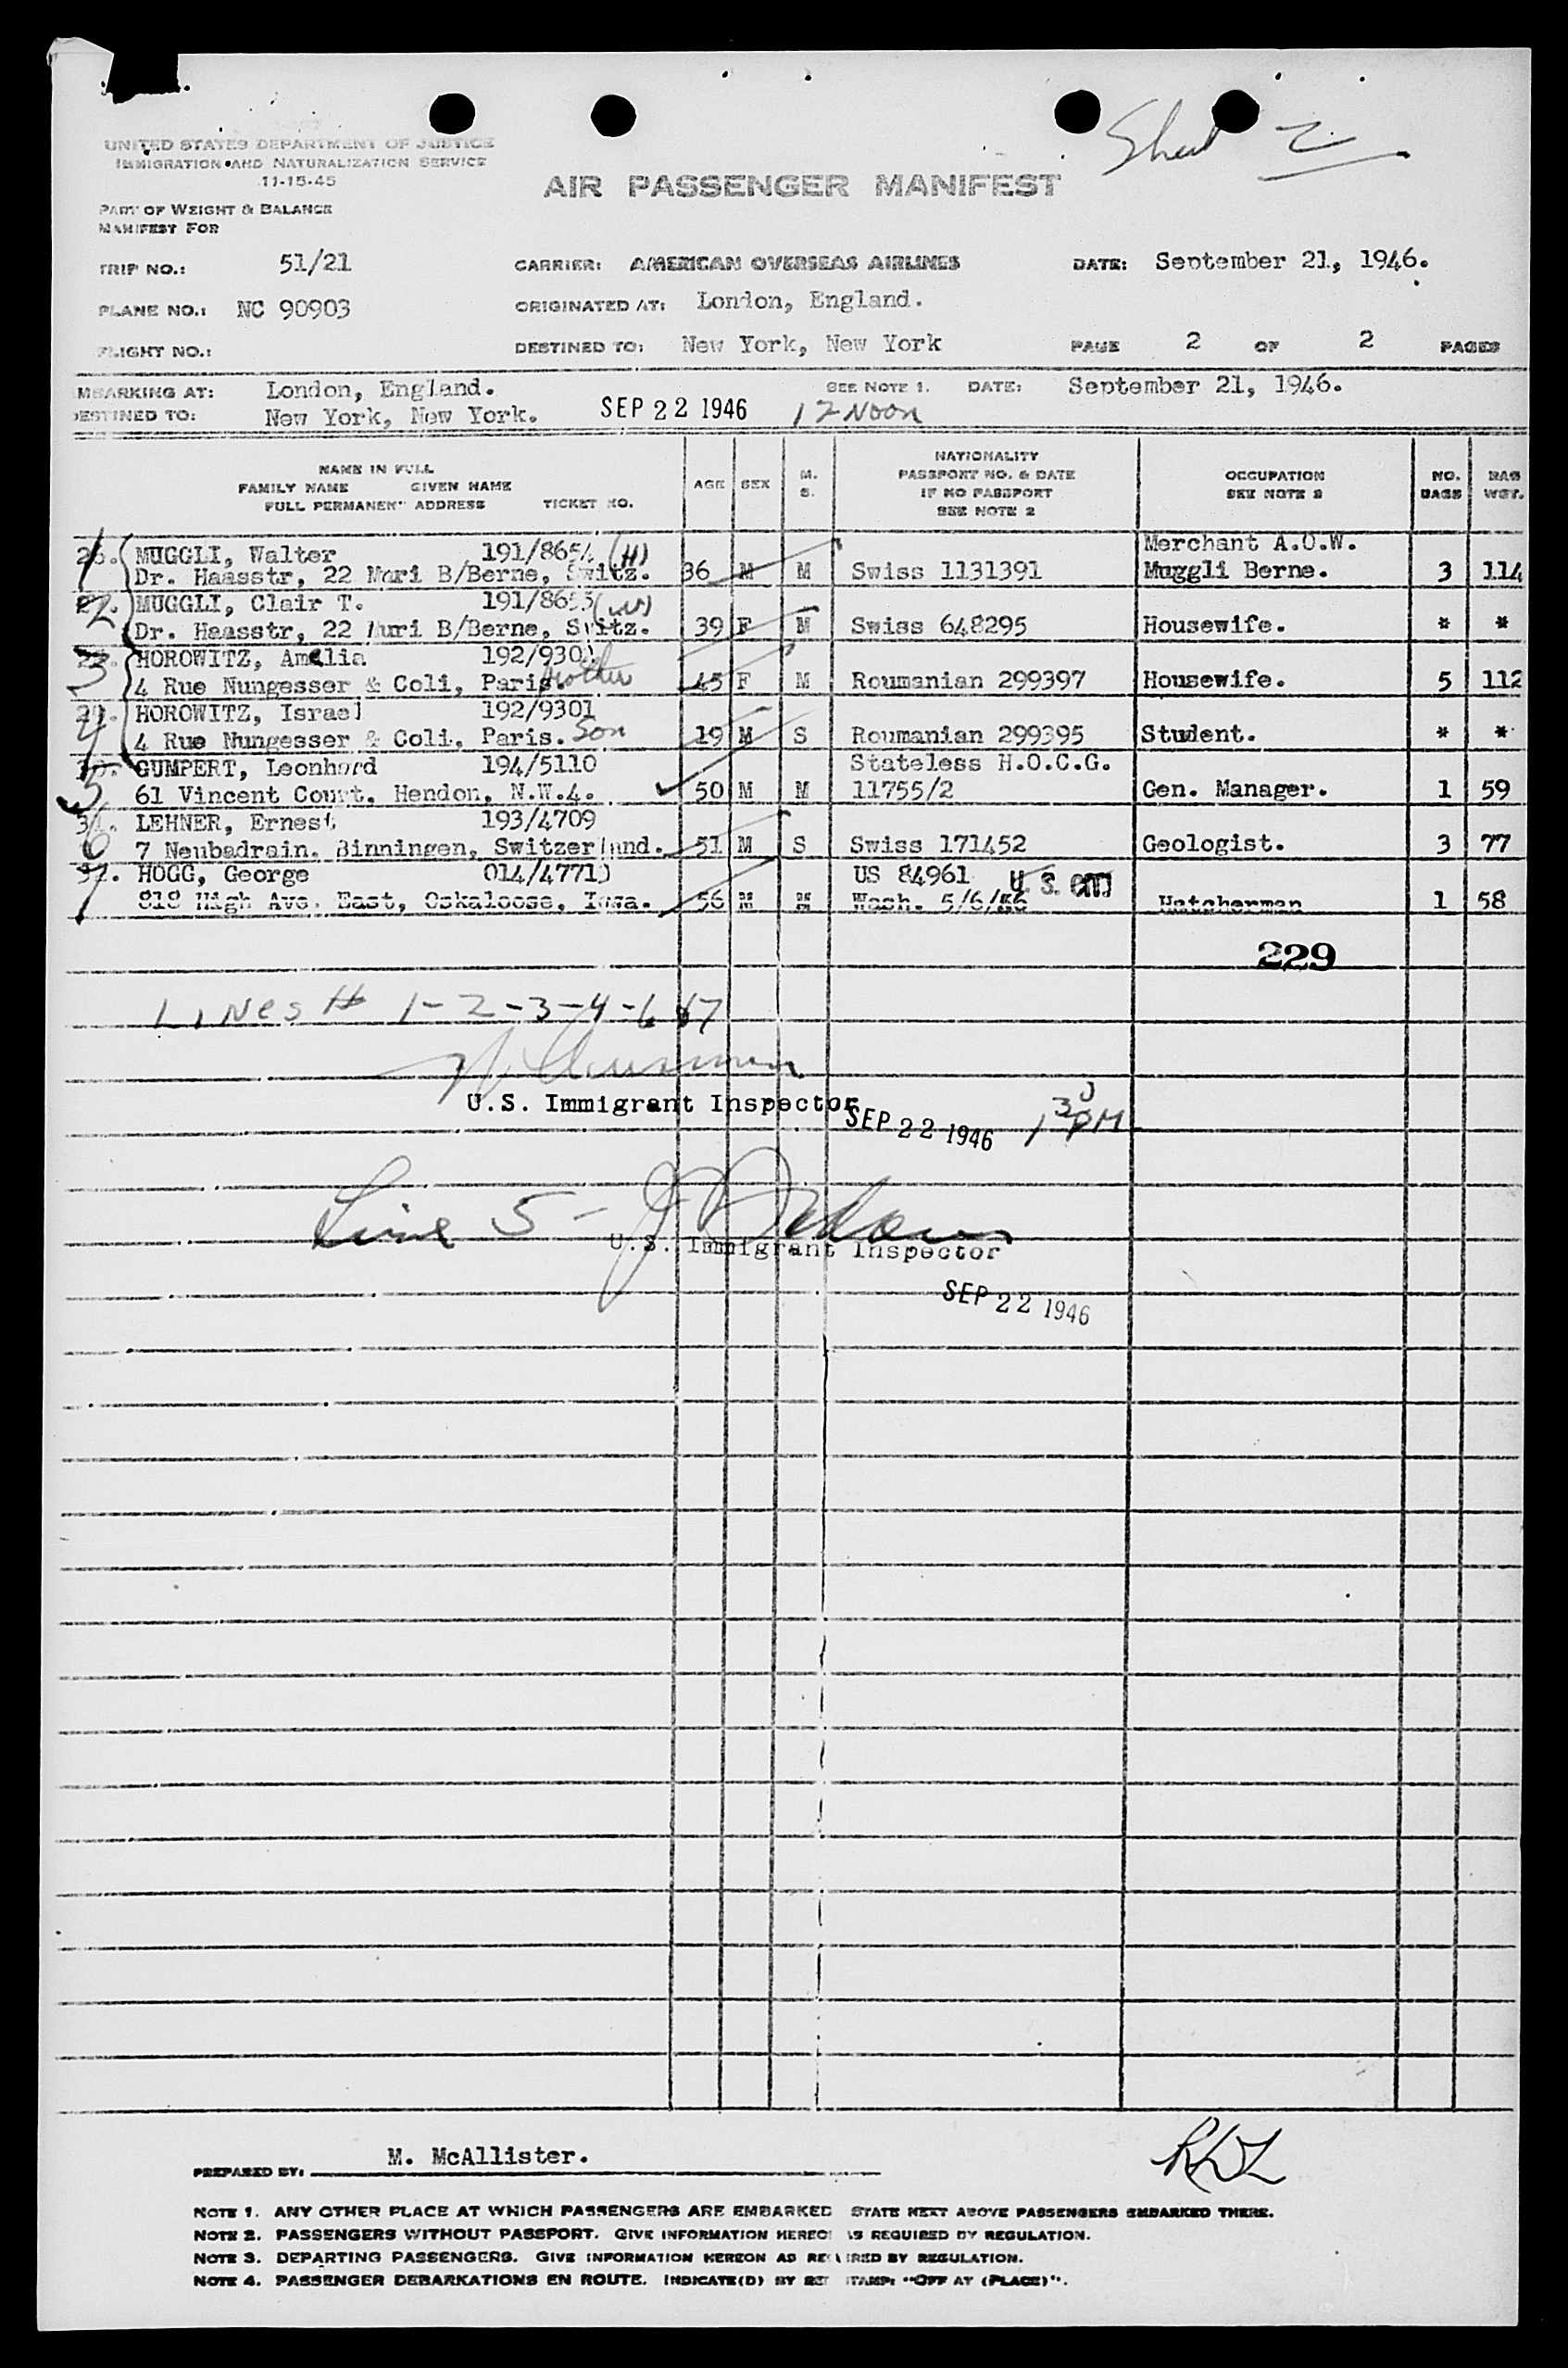 Sheet 2
UNITED STATES DEPARTMENT OF JUSTICE
IMMIGRATION AND NATURALIZATION SERVICE
11-15-45
AIR PASSENGER MANIFEST
PART OF WEIGHT & BALANCE
MANIFEST FOR
TRIP NO.: 51/21 CARRIER: AMERICAN OVERSEAS AIRLINES DATE: September 21, 1946.
PLANE NO.: NC 90903 ORIGINATED AT: London, England.
FLIGHT NO.: DESTINED TO: New York, New York PAGE 2 OF 2 PAGES
MBARKING AT: London, England. SEE NOTE 1. DATE: September 21, 1946.
DESTINED TO: New York, New York. SEP 22 1946 12 Noon
NAME IN FULL
FAMILY NAME GIVEN NAME
FULL PERMANENT ADDRESS TICKET NO.
AGE SEX M. S.
NATIONALITY
PASSPORT NO. & DATE
IF NO PASSPORT
SEE NOTE 2
OCCUPATION
SEE NOTE 3
NO. BAGS
BAG WGT.
1 26. MUGGLI, Walter 191/8654 (H) Merchant A.O.W.
Dr. Haasstr, 22 Muri B/Berne, Switz. 36 M M Swiss 1131391 Muggli Berne. 3 114
2 MUGGLI, Clair T. 191/8653 (W)
Dr. Haasstr, 22 Muri B/Berne, Switz. 39 F M Swiss 648295 Housewife. * *
3 HOROWITZ, Amelia 192/930
4 Rue Nungesser & Coli, Paris. Mother 45 F M Roumanian 299397 Housewife. 5 112
4 29. HOROWITZ, Israel 192/9301
4 Rue Nungesser & Coli, Paris. Son 19 M S Roumanian 299395 Student. * *
5 GUMPERT, Leonhard 194/5110 Stateless H.O.C.G.
61 Vincent Court, Hendon, N.W.4. 50 M M 11755/2 Gen. Manager. 1 59
6 31. LEHNER, Ernest 193/4709
7 Neubadrain, Binningen, Switzerland. 51 M S Swiss 171452 Geologist. 3 77
7 32. HOGG, George 014/4771 US 84961 U.S. CIT
818 High Ave. East, Oskaloose, Iowa. 56 M M Wash. 5/6/46 Hatcherman 1 58
229
LINES # 1-2-3-4-6 & 7
U.S. Immigrant Inspector
SEP 22 1946 1 30 PM
Line 5 -
U.S. Immigrant Inspector
SEP 22 1946
RDL
PREPARED BY: M. McAllister.
NOTE 1. ANY OTHER PLACE AT WHICH PASSENGERS ARE EMBARKED STATE NEXT ABOVE PASSENGERS EMBARKED THERE.
NOTE 2. PASSENGERS WITHOUT PASSPORT. GIVE INFORMATION HEREON AS REQUIRED BY REGULATION.
NOTE 3. DEPARTING PASSENGERS. GIVE INFORMATION HEREON AS REQUIRED BY REGULATION.
NOTE 4. PASSENGER DEBARKATIONS EN ROUTE. INDICATE(D) BY STAMP: "OFF AT (PLACE)".